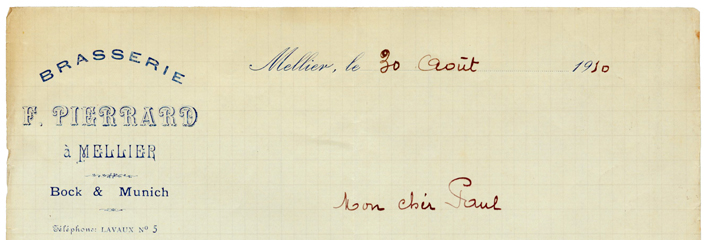 BRASSERIE
F. PIERRARD
à MELLIER
Bock & Munich
Téléphone: LAVAUX Nº 5
Mellier, le 30 Août 1910
Mon cher Paul